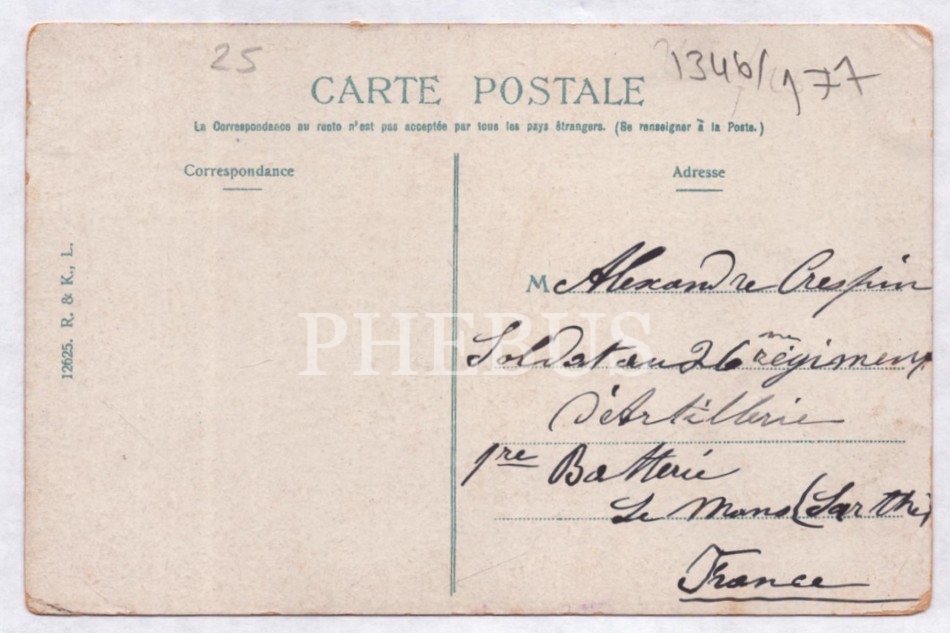 25
1346/177
CARTE POSTALE
La Correspondance au recto n'est pas acceptée par tous les pays étrangers. (Se renseigner à la Poste.)
Correspondance
Adresse
12625. R. & K., L.
M Alexandre Crespin
Soldat au 26me régiment
d'Artillerie
1re Batterie
Le Mans (Sarthe)
France
PHEBUS